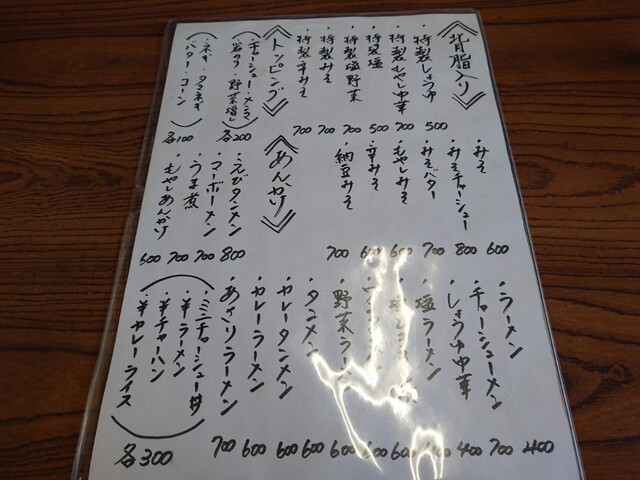 《背脂入り》
・特製しょうゆ 500
・特製もやし中華 700
・特製塩 500
・特製塩野菜 700
・特製みそ 700
・特製辛みそ 700
《トッピング》
・チャーシュー・メンマ
・岩のり・野菜増し
各200
・ネギ・タマネギ
・バター・コーン
各100
・みそ 600
・みそチャーシュー 800
・みそバター 700
・もやしみそ 600
・辛みそ 600
・納豆みそ 700
《あんかけ》
・えびタンメン 800
・マーボーメン 700
・うま煮 700
・もやしあんかけ 600
・ラーメン 400
・チャーシューメン 700
・しょうゆ中華 400
・塩ラーメン
600
600
・野菜ラーメン 600
・タンメン 600
・カレータンメン 600
・カレーラーメン 600
・あさりラーメン 700
・ミニチャーシュー丼
・半ラーメン
・半チャーハン
・半カレーライス
各300